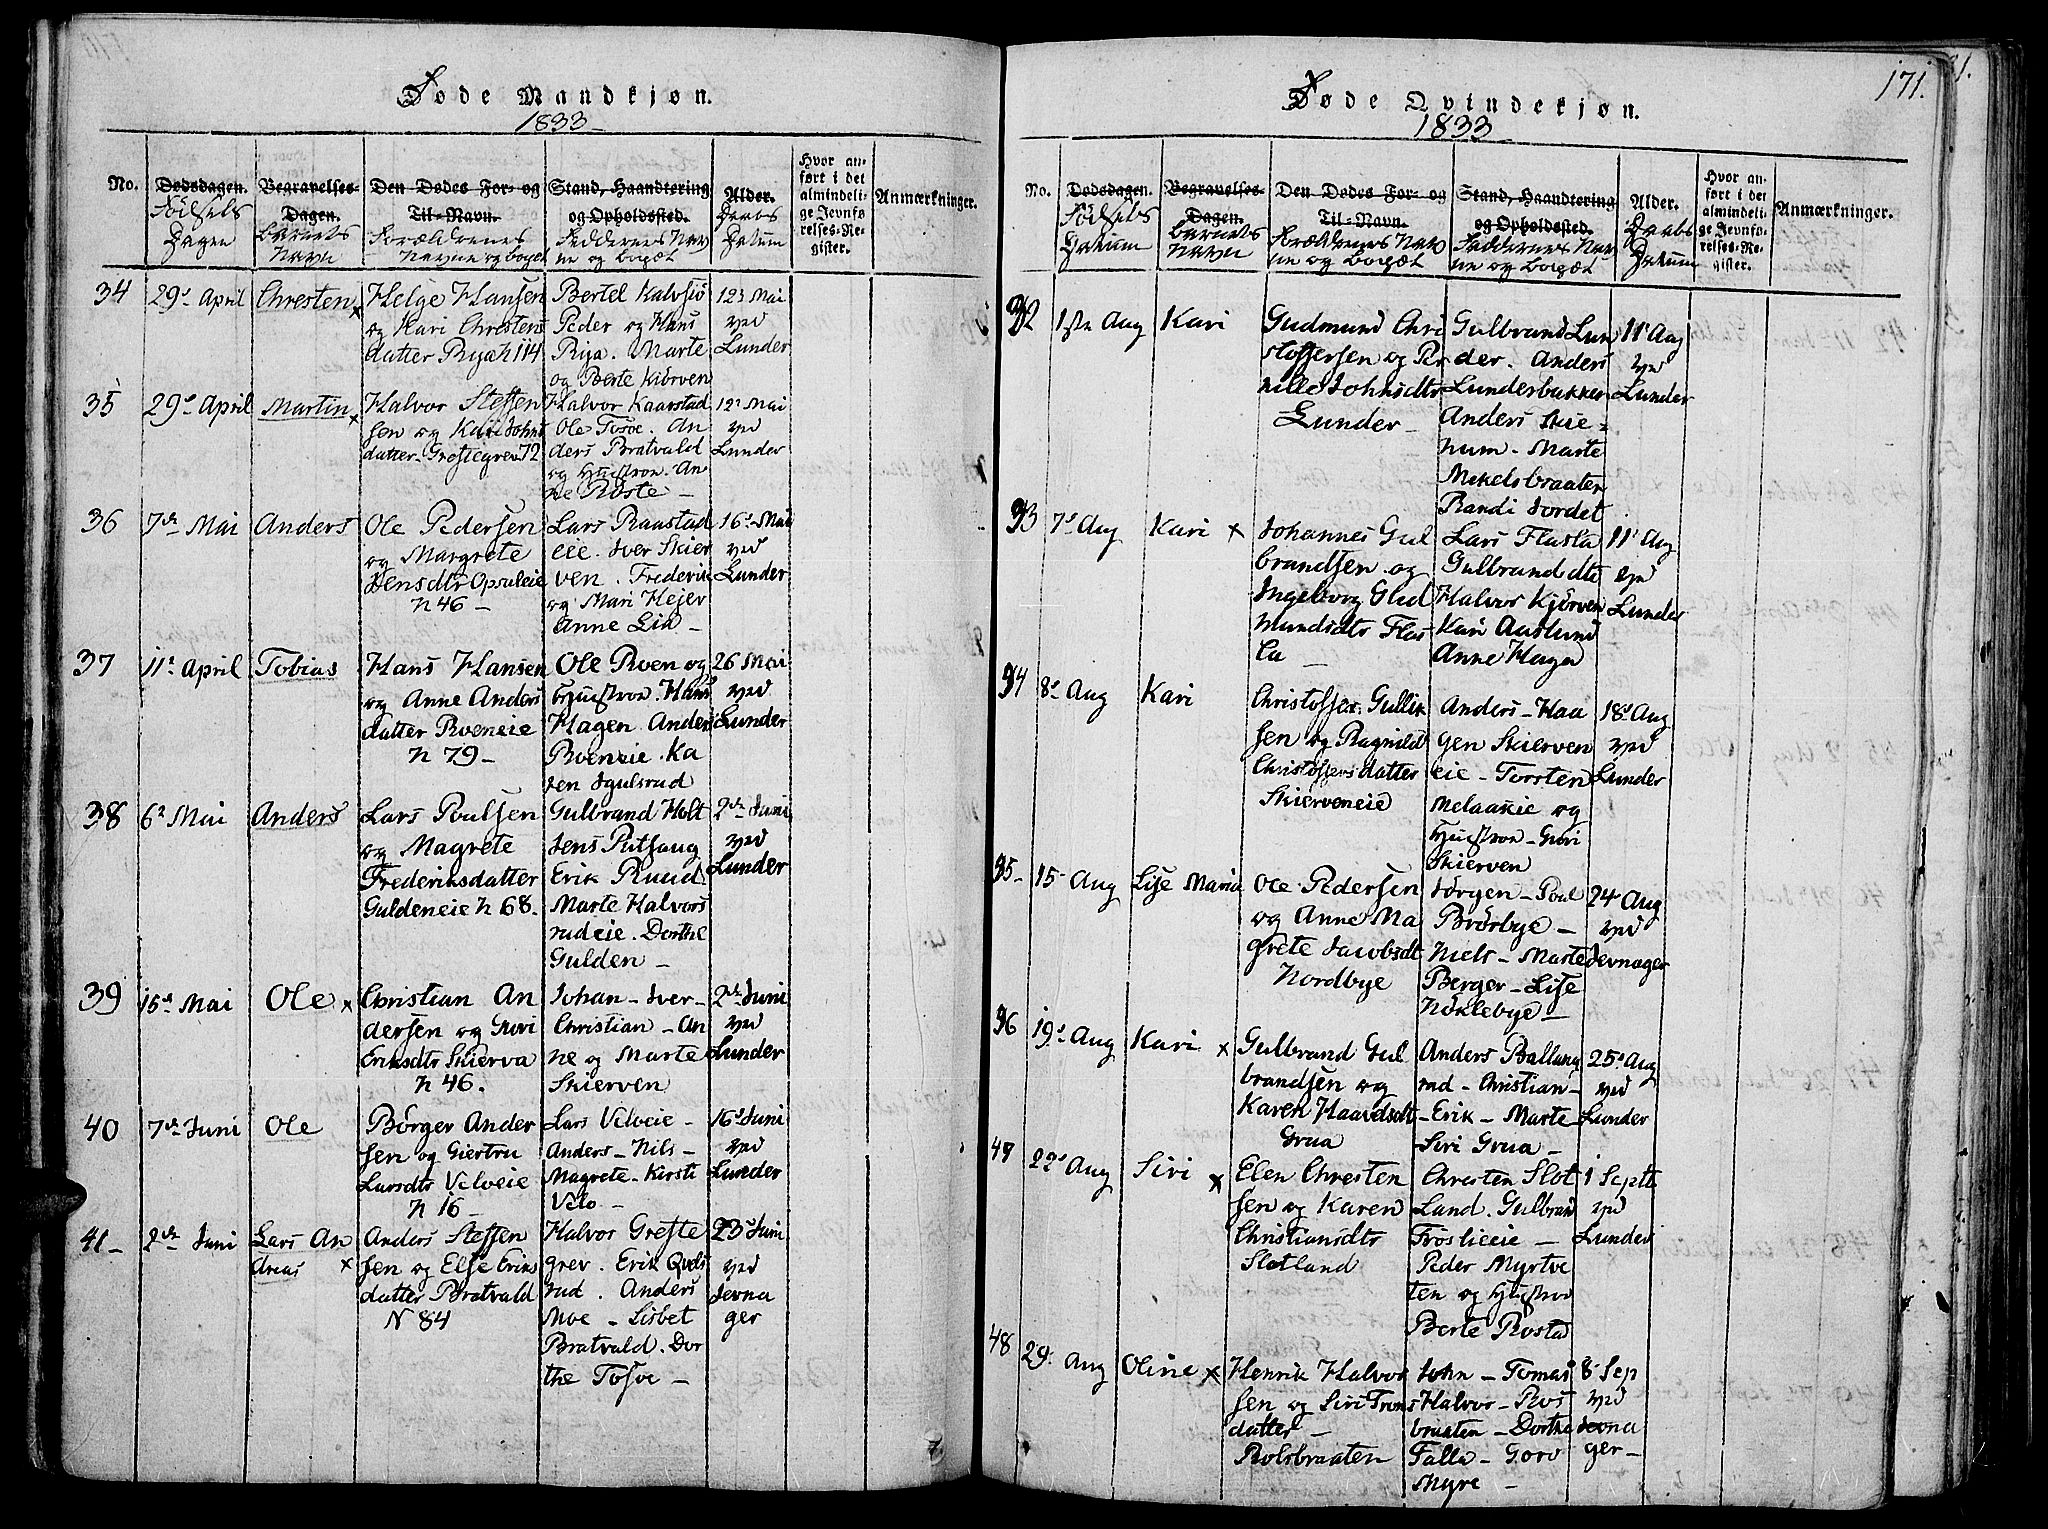 Føde Mandkjøn.
1833
No.
Dødsdagen.
Fødsels
Dagen
Begravelses-
Dagen.
Barnets
Navn
Den Dødes For- og
Til-Navn.
Forældrenes
Navne og bopæl
Stand, Haandtering
og Opholdssted.
Faddernes Nav
ne og bopæl
Alder.
Daabs
Datum
Hvor an-
ført i det
almindeli-
ge Jevnfø-
relses-Re-
gister.
Anmærkninger.
34
29 April
Chresten
Helge Hansen
og Kari Chrestens
datter Rya N 114
Bertel Kalvsiø
Peder og Hans
Rya. Marte
og Berte Kiørven
12 Mai
ved
Lunder
35
29 April
Martin
Halvor Steffen
sen og Kari Johns
datter 72
Halvor Kaarstad
Ole Tosoe. An
ders Bratvald
og Hustroe. An
ne Røste
12 Mai
ved
Lunder
36
7de Mai
Anders
Ole Pedersen
og Margrete
Jensdtr Opsaleie
N 46
Lars Raastad
eie. Iver Skier
ven. Frederik
og Mari Hejer
Anne Lia
16 Mai
ved
Lunder
37
11 April
Tobias
Hans Hansen
og Anne Anders
datter Roeneie
N 79
Ole Roen og
Hustroe. Hans
Hagen. Anders
Roeneie. Ka
ren Igulsrud
26 Mai
ved
Lunder
38
6 Mai
Anders
Lars Poulsen
og Magrete
Frederiksdatter
Guldeneie N 68.
Gulbrand Holt
Jens Putsaug
Erik Ruud
Marte Halvors
rudeie. Dorthe
Gulden
2den Juni
ved
Lunder
39
15 Mai
Ole
Christian An
dersen og Guri
Eriksdtr Skierva
N 46.
Johan - Iver -
Christian - An
ne og Marte
Skierven
2den Juni
ved
Lunder
40
7de Juni
Ole
Børger Ander
sen og Giertru
Larsdtr Velveie
N 16
Lars Velveie -
Anders - Nils -
Magrete - Kirsti
Velo
16 Juni
ved
Lunder
41
2den Juni
Lars An
dreas
Anders Steffen
sen og Else Eriks
datter Bratvald
N 84
Halvor Grefte
grev. Erik Qvels
rud. Anders
Moe - Lisbet
Bratvald. Dor
the Tosoe
23 Juni
ved
Jevna
ger
171.
Føde Qvindekjøn.
1833
No.
Dødsdagen.
Fødsels
Datum
Begravelses-
Dagen.
Barnets
Navn
Den Dødes For- og
Til-Navn.
Forældrenes Nav
ne og bopæl
Stand, Haandtering
og Opholdssted.
Faddernes Nav
ne og bopæl
Alder.
Daabs
Datum
Hvor an-
ført i det
almindeli-
ge Jevnfø-
relses-Re-
gister.
Anmærkninger.
1ste Aug
Kari
Gudmund Chri
stoffersen og Per
nille Johnsdtr
Lunder
Gulbrand Lun
der. Anders
Lunderbakken
Anders Skie
num - Marte
Mikelsbraaten
Randi Jordet
11 Aug
ved
Lunder
7 Aug
Kari
Johannes Gul
brandsen og
Ingeborg Gud
mundsdtr Flas
la
Lars Flasla
Gulbrand dto
Halvor Kjørven
Kari Aaslund
Anne Hagen
11 Aug
ved
Lunder
8 Aug
Kari
Christoffer Gullik
sen og Ragnild
Christoffersdatter
Skierveneie
Anders - Haa
gen Skierven
eie - Torsten
Melaakie og
Hustroe - Guri
Skierven
18 Aug
ved
Lunder
15 Aug
Lise Maria
Ole Pedersen
og Anne Ma
grete Jacobsdt
Nordbye
Jørgen - Poul
Brørbye -
Niels - Marte
Berger - Lise
Nøklebye
24 Aug
ved
Jevnager
19 Aug
Kari
Gulbrand Gul
brandsen og
Karen Haavelsdt
Grua
Anders Ballang
rud - Christian -
Erik - Marte -
Siri Grua -
25 Aug
ved
Lunder
22 Aug
Siri
Elen Chresten
sen og Karen
Christiansdtr
Slotland
Chresten Slot
land. Gulbran
Frøslieeie -
Peder Myrtve
ten og Hustroe
Berte Rosta
1 Septr
ved
Lunder
48
29 Aug
Oline
Henrik Halvor
sen og Siri Trons
datter
Rolsbraaten
John - Tomas
Halvor - Ros
braaten - Dorthe
Falla - Goro
Myre
8 Sep
ved
Jevna
ger